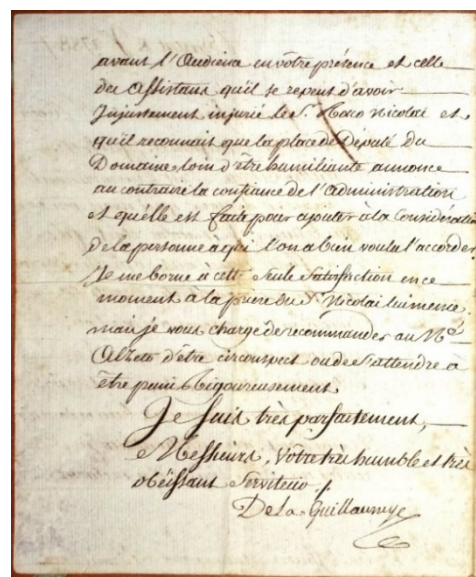 avant l'Audience en vôtre présence et celle
des Assistans qu'il se repent d'avoir
Injustement injurié le S. Roco Nicolai et
qu'il reconnait que la place de Deputé du
Domaine, loin d'être humiliante annonce
au contraire la confiance de l'administration
et qu'elle est faite pour ajouter à la Consideration
de la personne à qui l'on a bien voulu l'accorder.
Je me borne à cette seule satisfaction en ce
moment à la priere du S. Nicolai lui meme,
mais je vous charge de recommander au
d'être circonspect ou de s'attendre à
être puni Rigoureusement.
Je suis très parfaitement,
Messieurs, Votre très humble et très
obéissant Serviteur /.
De la Guillaumye